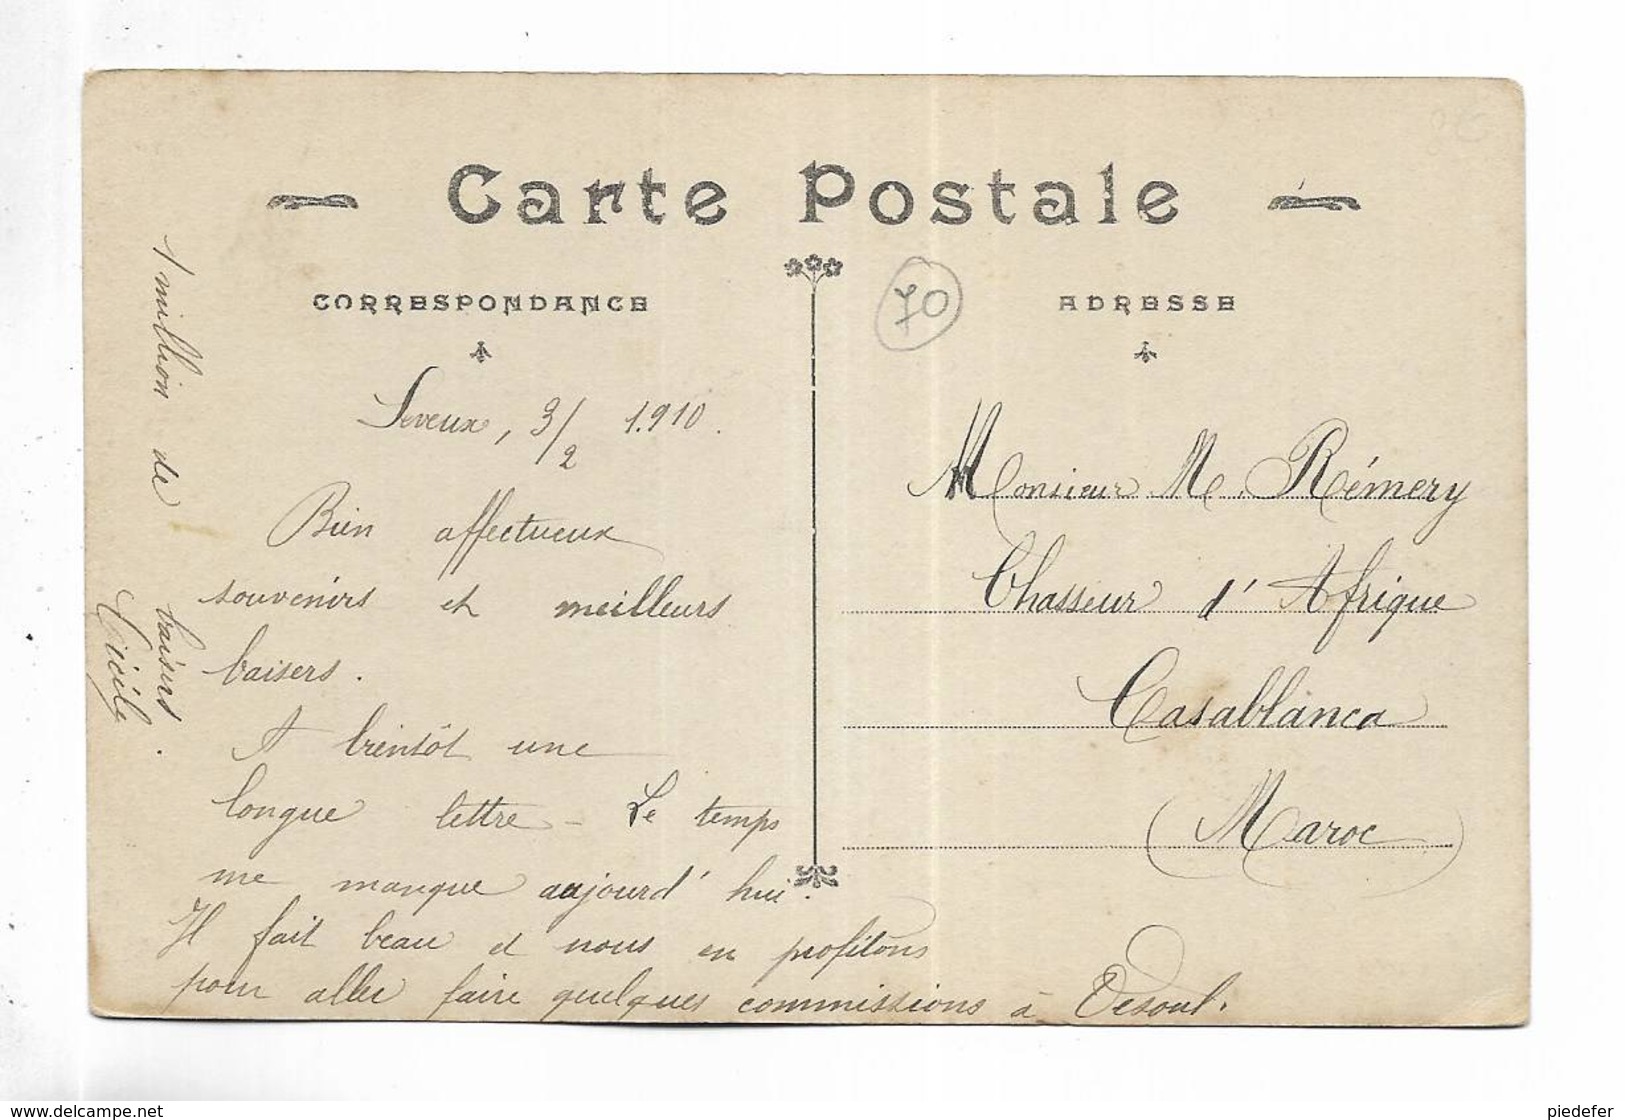 Carte Postale
CORRESPONDANCE
Seveux, 3/2 1.910.
Bien affectueux
souvenirs et meilleurs
baisers.
A bientôt une
longue lettre – Le temps
me manque aujourd'hui.
Il fait beau et nous en profitons
pour aller faire quelques commissions à Vesoul.
1 million de baisers.
Cécile
70
ADRESSE
Monsieur M. Rémery
Chasseur d'Afrique
Casablanca
(Maroc)
www.delcampe.net
piedefer